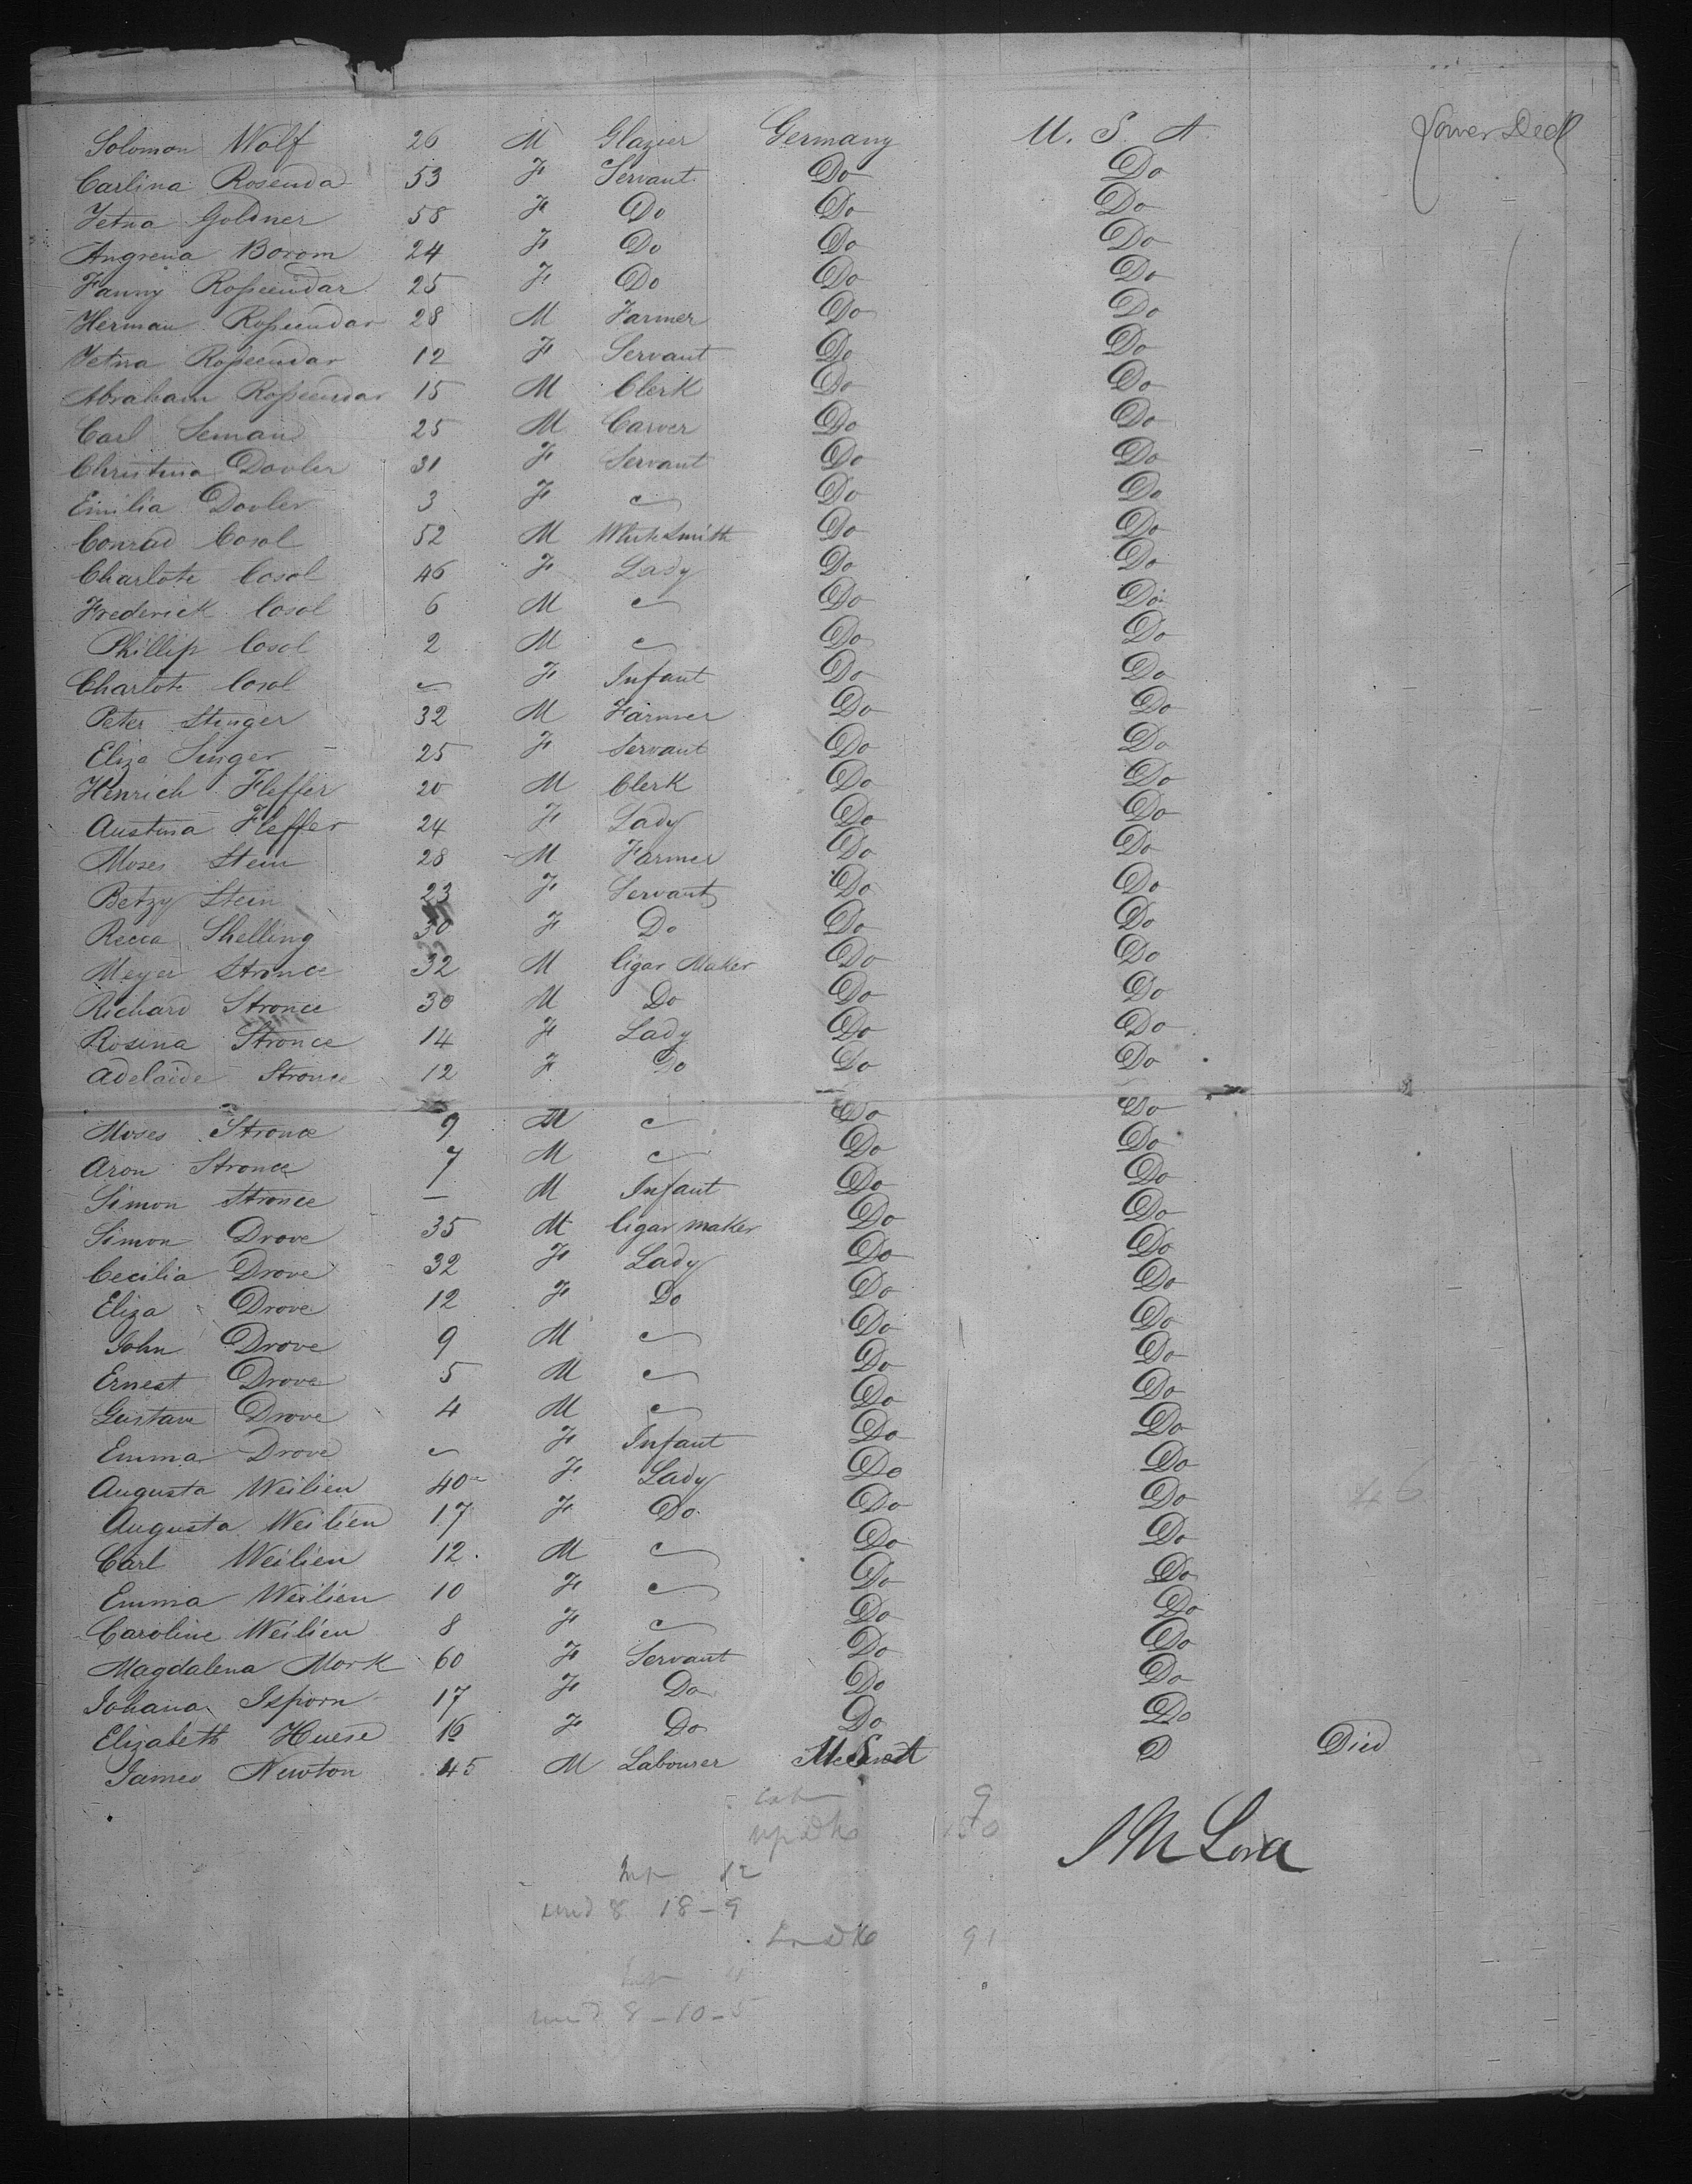 Solomon Wolf 26 M Glazier Germany U. S. A. Lower Deck
Carlina Rosenda 53 F Servant Do Do
Yetna Goldner 58 F Do Do Do
Angrena Borom 24 F Do Do Do
Fanny Rosseendar 25 F Do Do Do
Herman Rosseendar 28 M Farmer Do Do
Yetna Rosseendar 12 F Servant Do Do
Abraham Rosseendar 15 M Clerk Do Do
Carl Seman 25 M Carver Do Do
Christina Dovler 31 F Servant Do Do
Emilia Dovler 3 F Do Do
Conrad Cosol 52 M Whitesmith Do Do
Charlote Cosol 46 F Lady Do Do
Frederick Cosol 6 M Do Do
Phillip Cosol 2 M Do Do
Charlote Cosol F Infant Do Do
Peter Stinger 32 M Farmer Do Do
Eliza Singer 25 F Servant Do Do
Henrich Fleffer 20 M Clerk Do Do
Austina Fleffer 24 F Lady Do Do
Moses Stein 28 M Farmer Do Do
Betzy Stein 23 F Servant Do Do
Recca Shelling 30 F Do Do Do
Meyer Stronce 32 M Cigar Maker Do Do
Richard Stronce 30 M Do Do Do
Rosina Stronce 14 F Lady Do Do
Adelaide Stronce 12 F Do Do Do
Moses Stronce 9 M Do Do
Aron Stronce 7 M Do Do
Simon Stronce — M Infant Do Do
Simon Drove 35 M Cigar maker Do Do
Cecilia Drove 32 F Lady Do Do
Eliza Drove 12 F Do Do Do
John Drove 9 M Do Do
Ernest Drove 5 M Do Do
Gustave Drove 4 M Do Do
Emma Drove F Infant Do Do
Augusta Weilien 40 F Lady Do Do
Augusta Weilien 17 F Do Do Do
Carl Weilien 12 M Do Do
Emma Weilien 10 F Do Do
Caroline Weilien 8 F Do Do
Magdalena Mork 60 F Servant Do Do
Johana Isporn 17 F Do Do Do
Elizabeth Huese 16 F Do Do Do
James Newton 45 M Labourer D Died
9
12
und 8 18 - 9
91
und 8 - 10 - 5